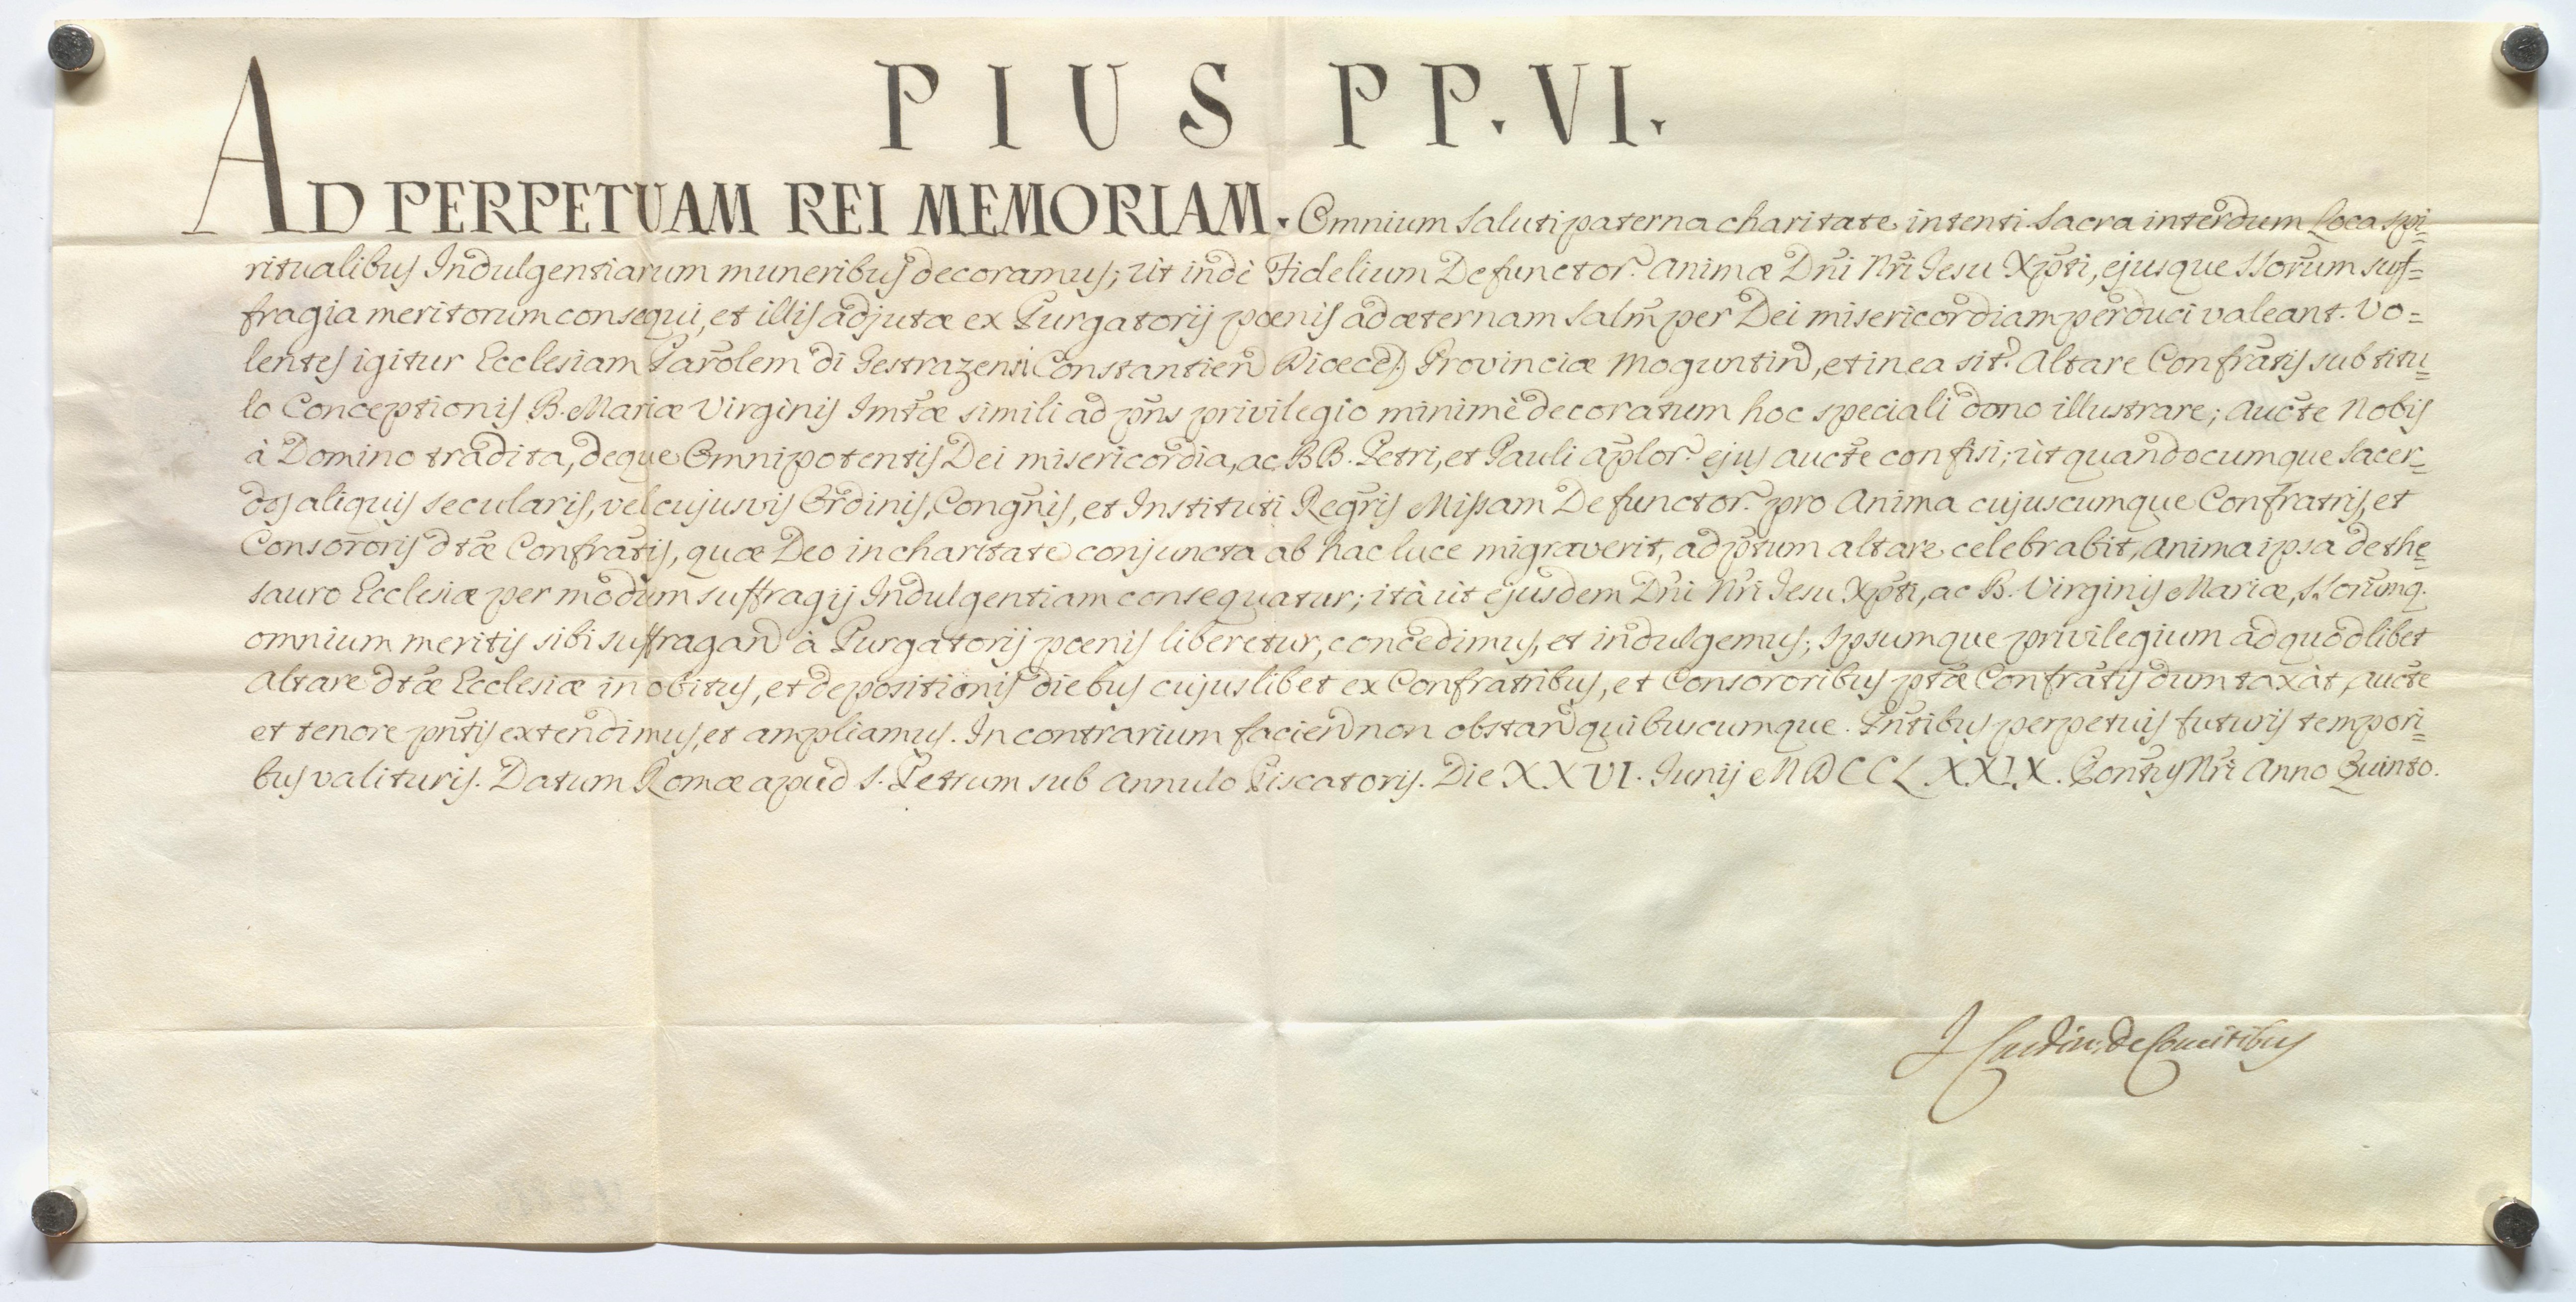 PIUS PP. VI.
AD PERPETUAM REI MEMORIAM. Omnium saluti paterna charitate intenti sacra interdum Loca spi=
ritualibus Indulgentiarum muneribus decoramus; ut indè Fidelium Defunctor. animæ Dñi Nr̃i Jesu Xp̃ti, ejusque SSorum suf=
fragia meritorum consequi, et illis adjutæ ex Purgatorij pœnis ad æternam salm̃ per Dei misericordiam perduci valeant. Vo=
lentes igitur Ecclesiam Parõlem di Gestrazensi Constantien Dioeces Provinciæ Moguntin, et in ea sit. Altare Confrãtis sub titu=
lo Conceptionis B. Mariæ Virginis Im̃tæ simili ad pñs privilegio minimè decoratum hoc speciali dono illustrare; auctẽ Nobis
à Domino tradita, deque Omnipotentis Dei misericordia, ac BB. Petri, et Pauli Ap̃lor. ejus auctẽ confisi; ut quandocumque Sacer=
dos aliquis secularis, vel cujusvis Ordinis, Congñis, et Instituti Regr̃is Missam Defunctor. pro Anima cujuscumque Confratris, et
Consororis dtæ̃ Confrãtis, quæ Deo in charitate conjuncta ab hac luce migraverit, ad p̃tum altare celebrabit, Anima ipsa de the=
sauro Ecclesiæ per modum suffragij Indulgentiam consequatur; ità ut ejusdem Dñi Nr̃i Jesu Xp̃ti, ac B. Virginis Mariæ, SSorumq.
omnium meritis sibi suffragan à Purgatorij pœnis liberetur, concedimus, et indulgemus; Ipsumque privilegium ad quodlibet
Altare dtæ̃ Ecclesiæ in obitus, et depositionis diebus cujuslibet ex Confratribus, et Consororibus ptæ̃ Confrãtis dumtaxàt, auctẽ
et tenore pñtis extendimus, et ampliamus. In contrarium facien non obstan quibuscumque. Pñtibus perpetuis futuris tempori=
bus valituris. Datum Romæ apud S. Petrum sub Annulo Piscatoris. Die XXVI. Junij MDCCLXXIX. Pontũs Nr̃i Anno Quinto.
J Cardin: de Comitibus